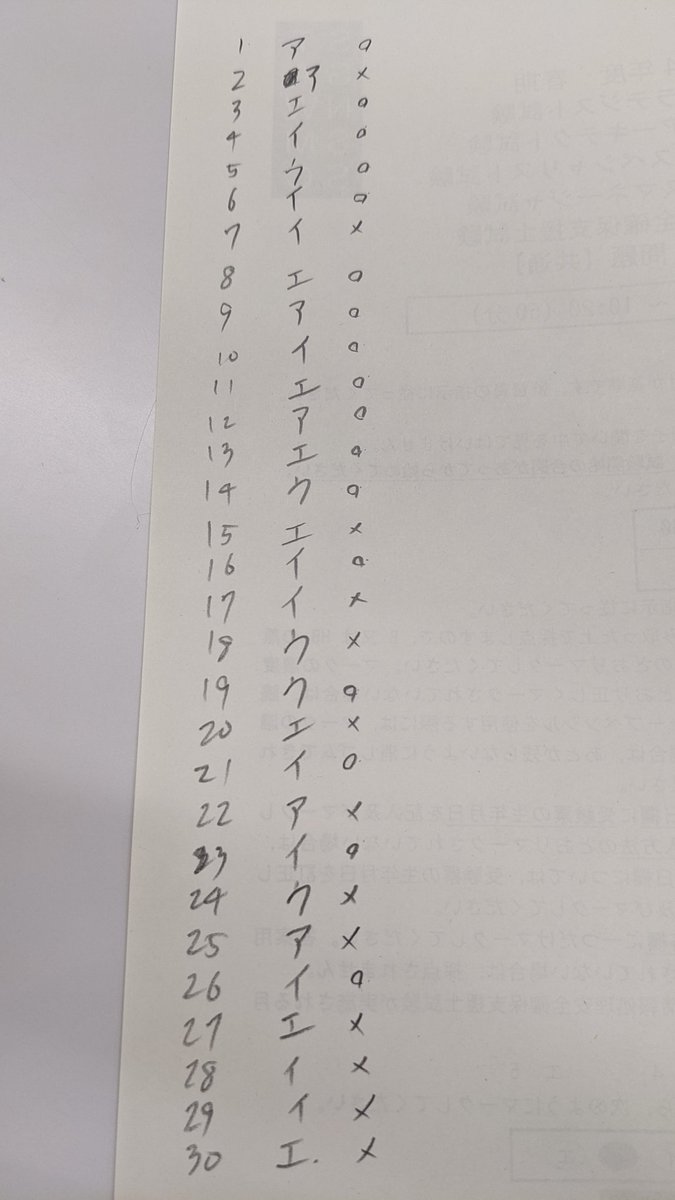 1 ア o
2 ア ×
3 エ o
4 イ o
5 ウ o
6 イ o
7 イ ×
8 エ o
9 ア o
10 イ o
11 エ o
12 ア o
13 エ o
14 ウ o
15 エ ×
16 イ o
17 イ ×
18 ウ ×
19 ウ o
20 エ ×
21 イ o
22 ア ×
23 イ o
24 ウ ×
25 ア ×
26 イ o
27 エ ×
28 イ ×
29 イ ×
30 エ. ×